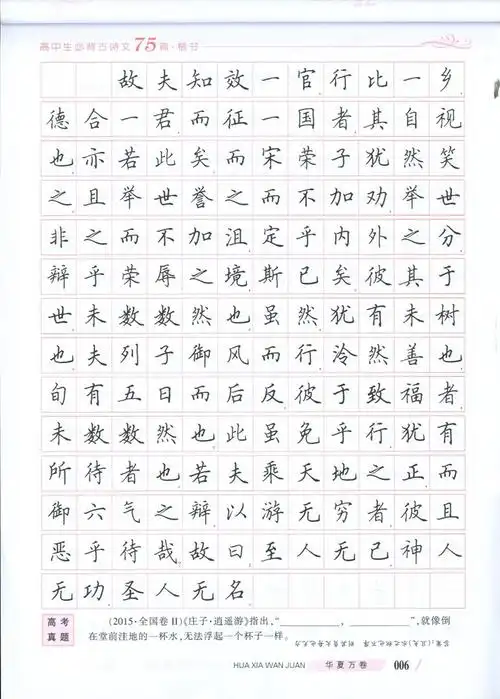 高中生必背古诗文75篇·楷书
故夫知效一官行比一乡
德合一君而征一国者其自视
也亦若此矣而宋荣子犹然笑
之且举世誉之而不加劝举世
非之而不加沮定乎内外之分
辩乎荣辱之境斯已矣彼其于
世未数数然也虽然犹有未树
也夫列子御风而行泠然善也
旬有五日而后反彼于致福者
未数数然也此虽免乎行犹有
所待者也若夫乘天地之正而
御六气之辩以游无穷者彼且
恶乎待哉故曰至人无己神人
无功圣人无名
高考真题
(2015·全国卷II)《庄子·逍遥游》指出,“____,____”,就像倒
在堂前洼地的一杯水,无法浮起一个杯子一样。
HUA XIA WAN JUAN 华夏万卷 006